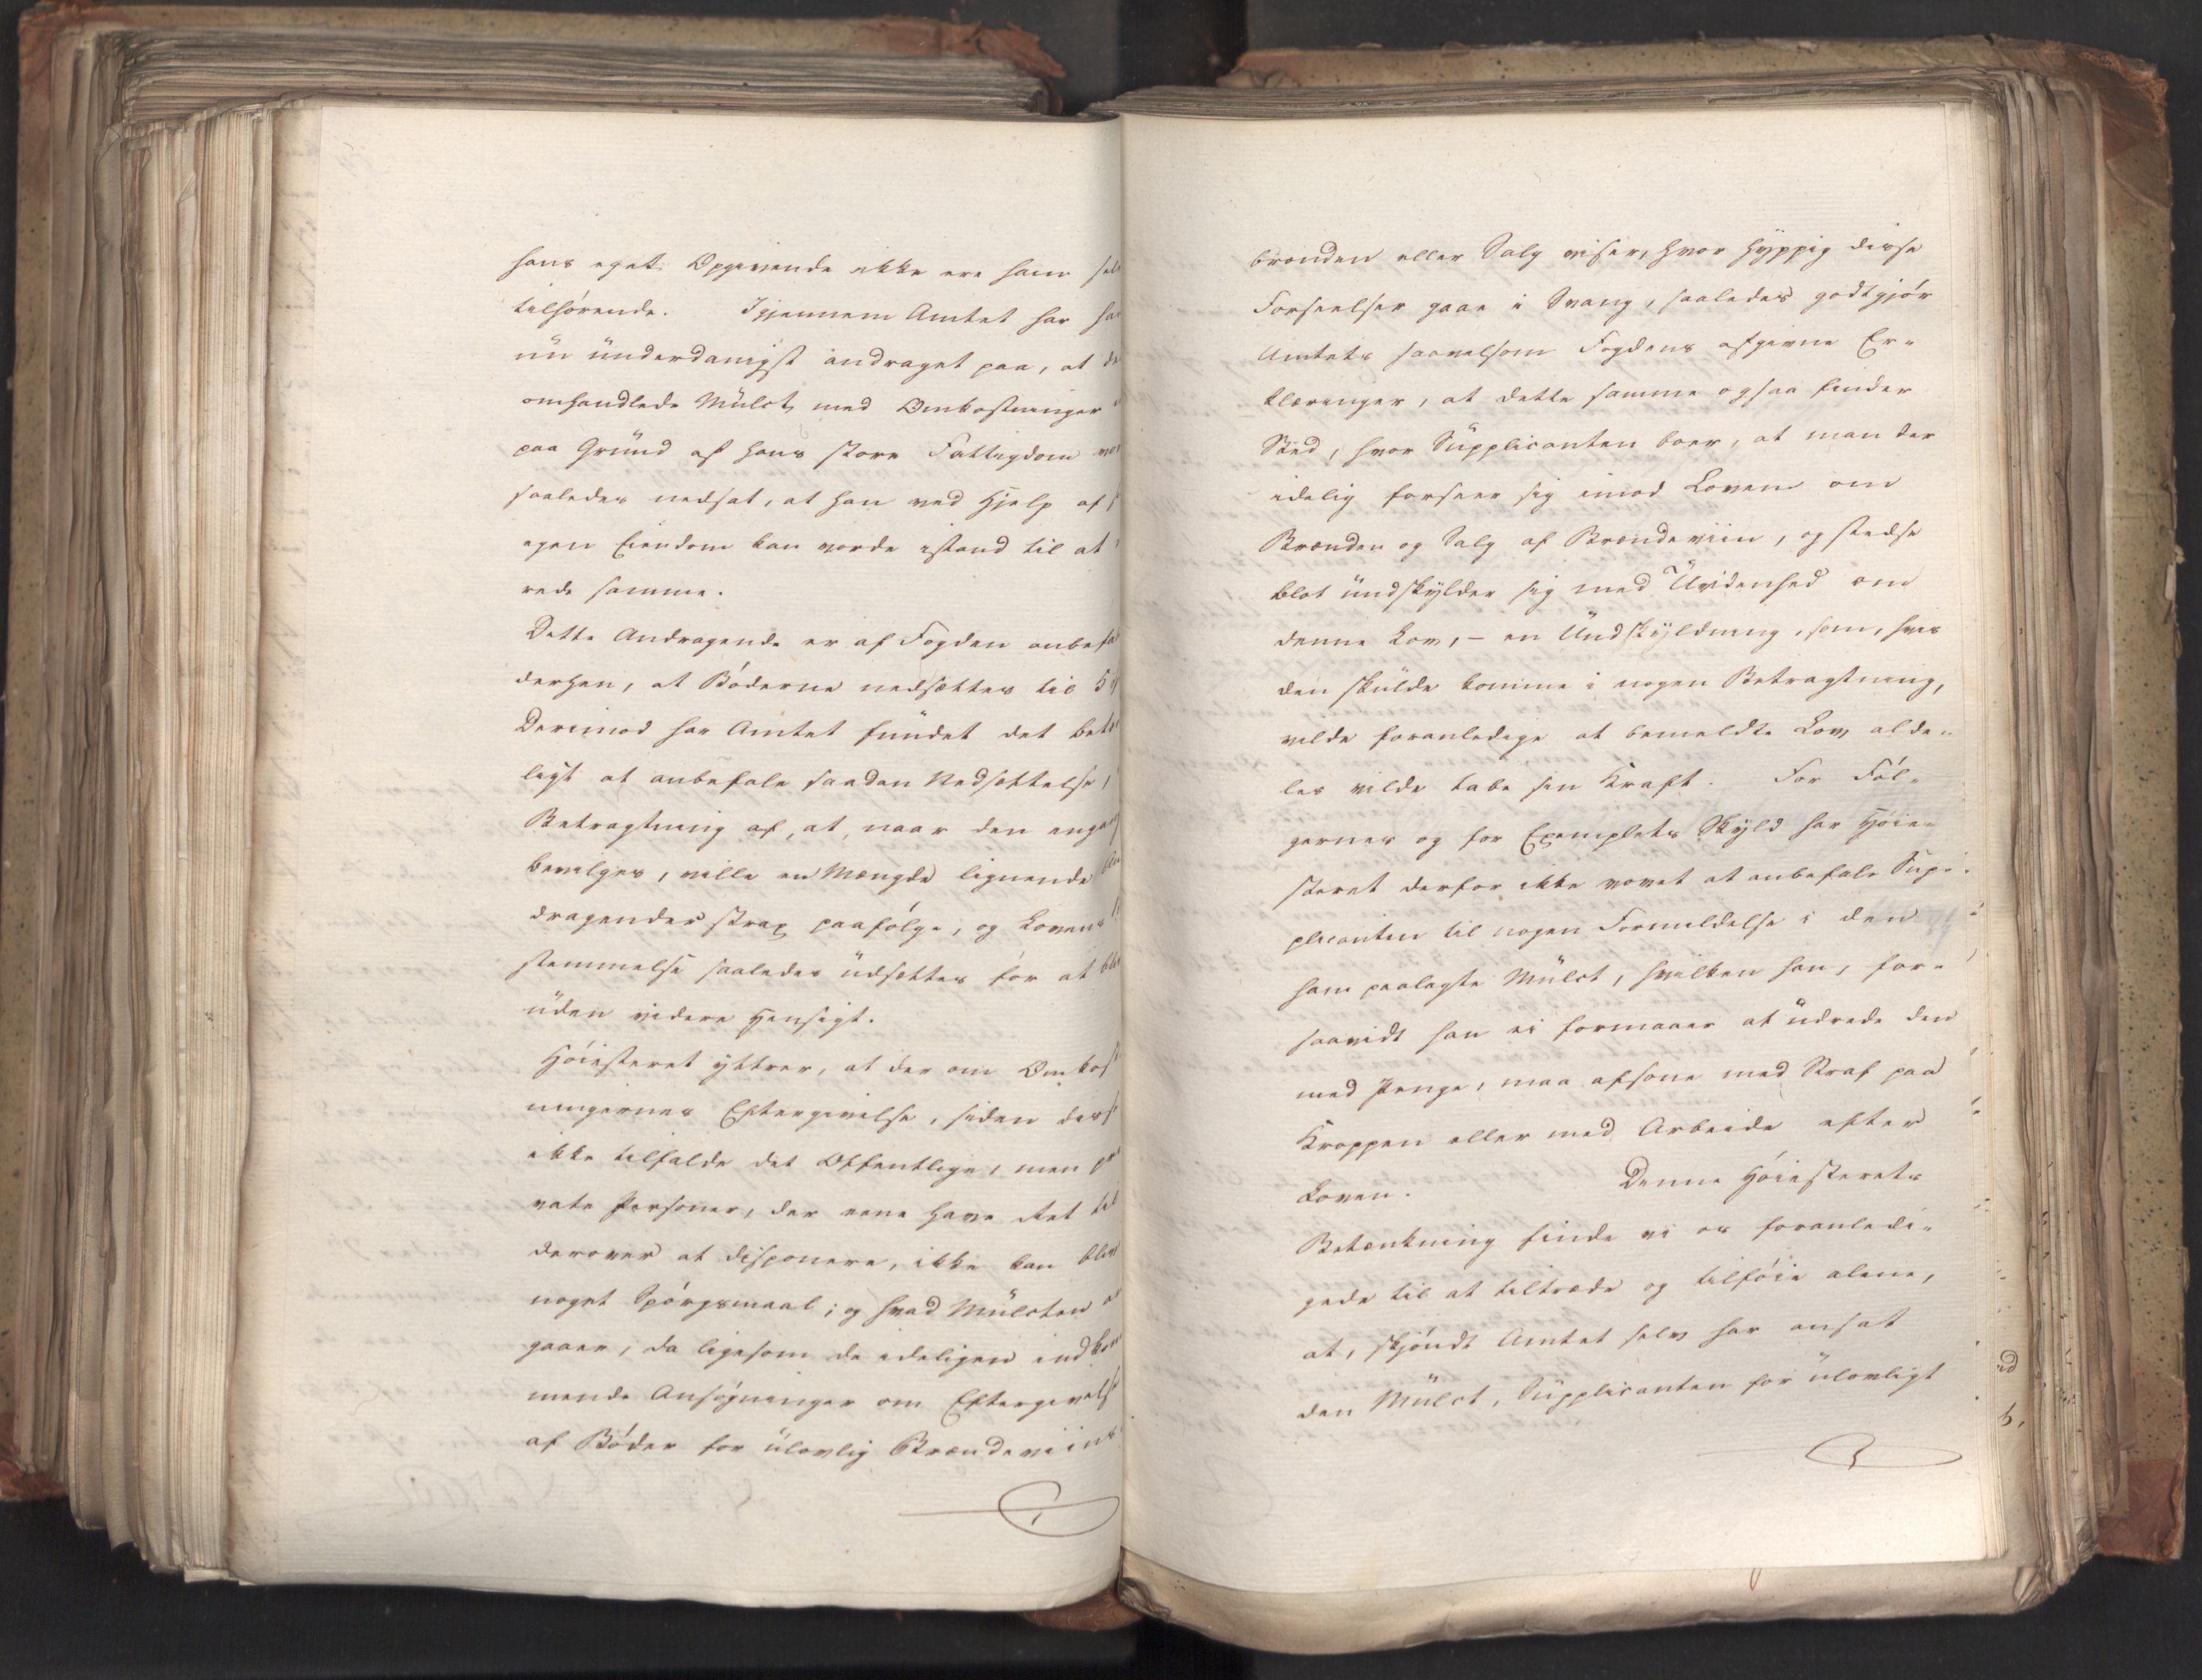 hans eget Opgivende ikke ere ham selv
tilhørende. Igjennem Amtet har han
nu underdanigst andraget paa, at de
omhandlede Mulct med Omkostninger
paa Grund af hans store Fattigdom vor
saaledes nedsat, at han ved Hjelp af
egen Eiendom kan vorde istand til at
rede samme.
Dette Andragende er af Fogden anbefal
derhen, at Bøderne nedsættes til 5
Derimod har Amtet fundet det betæ
ligt at anbefale saadan Nedsættelse,
Betragtning af, at, naar den engang
bevilges, ville en Mængde lignende An
dragender strax paafølge, og Lovens
stemmelse saaledes udsættes for at bli
uden videre Hensigt.
Høiesteret yttrer, at der om Omkost
ningernes Eftergivelse, siden disse
ikke tilfalde det Offentlige, men pri
vate Personer, der ene have Ret til
derover at disponere, ikke kan blive
noget Spørgsmaal; og hvad Mulcten an
gaaer, da ligesom de ideligen indkom
mende Ansøgninger om Eftergivelse
af Bøder for ulovlig Brændeviins
brænden eller Salg viser, hvor hyppig disse
Forseelser gaae i Svang, saaledes godtgjør
Amtets saavelsom Fogdens afgivne Er-
klæringer, at dette samme ogsaa finder
Sted, hvor Supplicanten boer, at man der
idelig forseer sig imod Loven om
Brænden og Salg af Brændeviin, og stedse
blot undskylder sig med Uvidenhed om
denne Lov, - en Undskyldning, som, hvis
den skulde komme i nogen Betragtning,
vilde foranledige at bemeldte Lov alde-
les vilde tabe sin Kraft. For Føl-
gernes og for Exemplets Skyld har Høie-
steret derfor ikke vovet at anbefale Sup-
plicanten til nogen Formildelse i den
ham paalagte Mulct, hvilken han, for-
saavidt han ei formaaer at udrede den
med Penge, maa afsone med Straf paa
Kroppen eller med Arbeide efter
Loven. Denne Høiesterets
Betænkning finde vi os foranledi-
gede til at tiltræde og tilføie alene,
at, skjøndt Amtet selv har ansat
den Mulct, Supplicanten for ulovligt